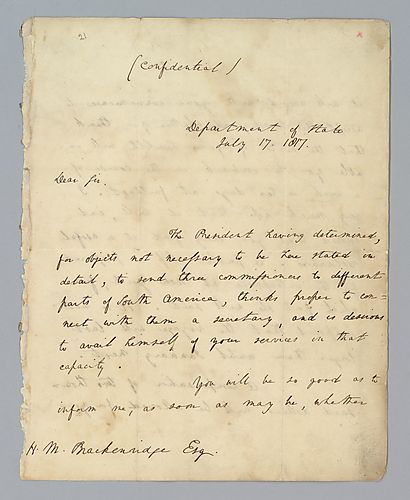 21
(Confidential)
Department of State
July 17. 1817.
Dear Sir.
The President having determined,
for objects not necessary to be here stated in
detail, to send three commissioners to different
parts of South America, thinks proper to con=
nect with them a secretary, and is desirous
to avail himself of your services in that
capacity.
You will be so good as to
inform me, as soon as may be, whether
H. M. Brackenridge Esq.